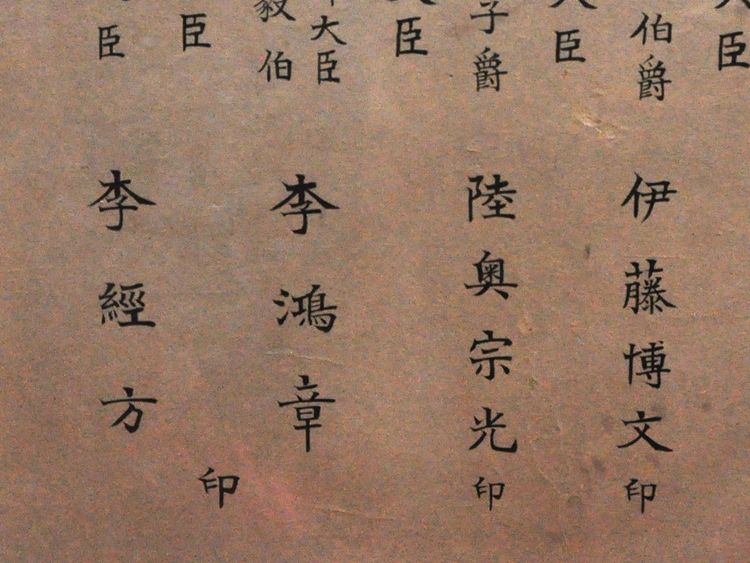 大臣
伯爵伊藤博文印
大臣
子爵陸奥宗光印
大臣
大臣
毅伯
李鴻章
印
臣
臣李經方